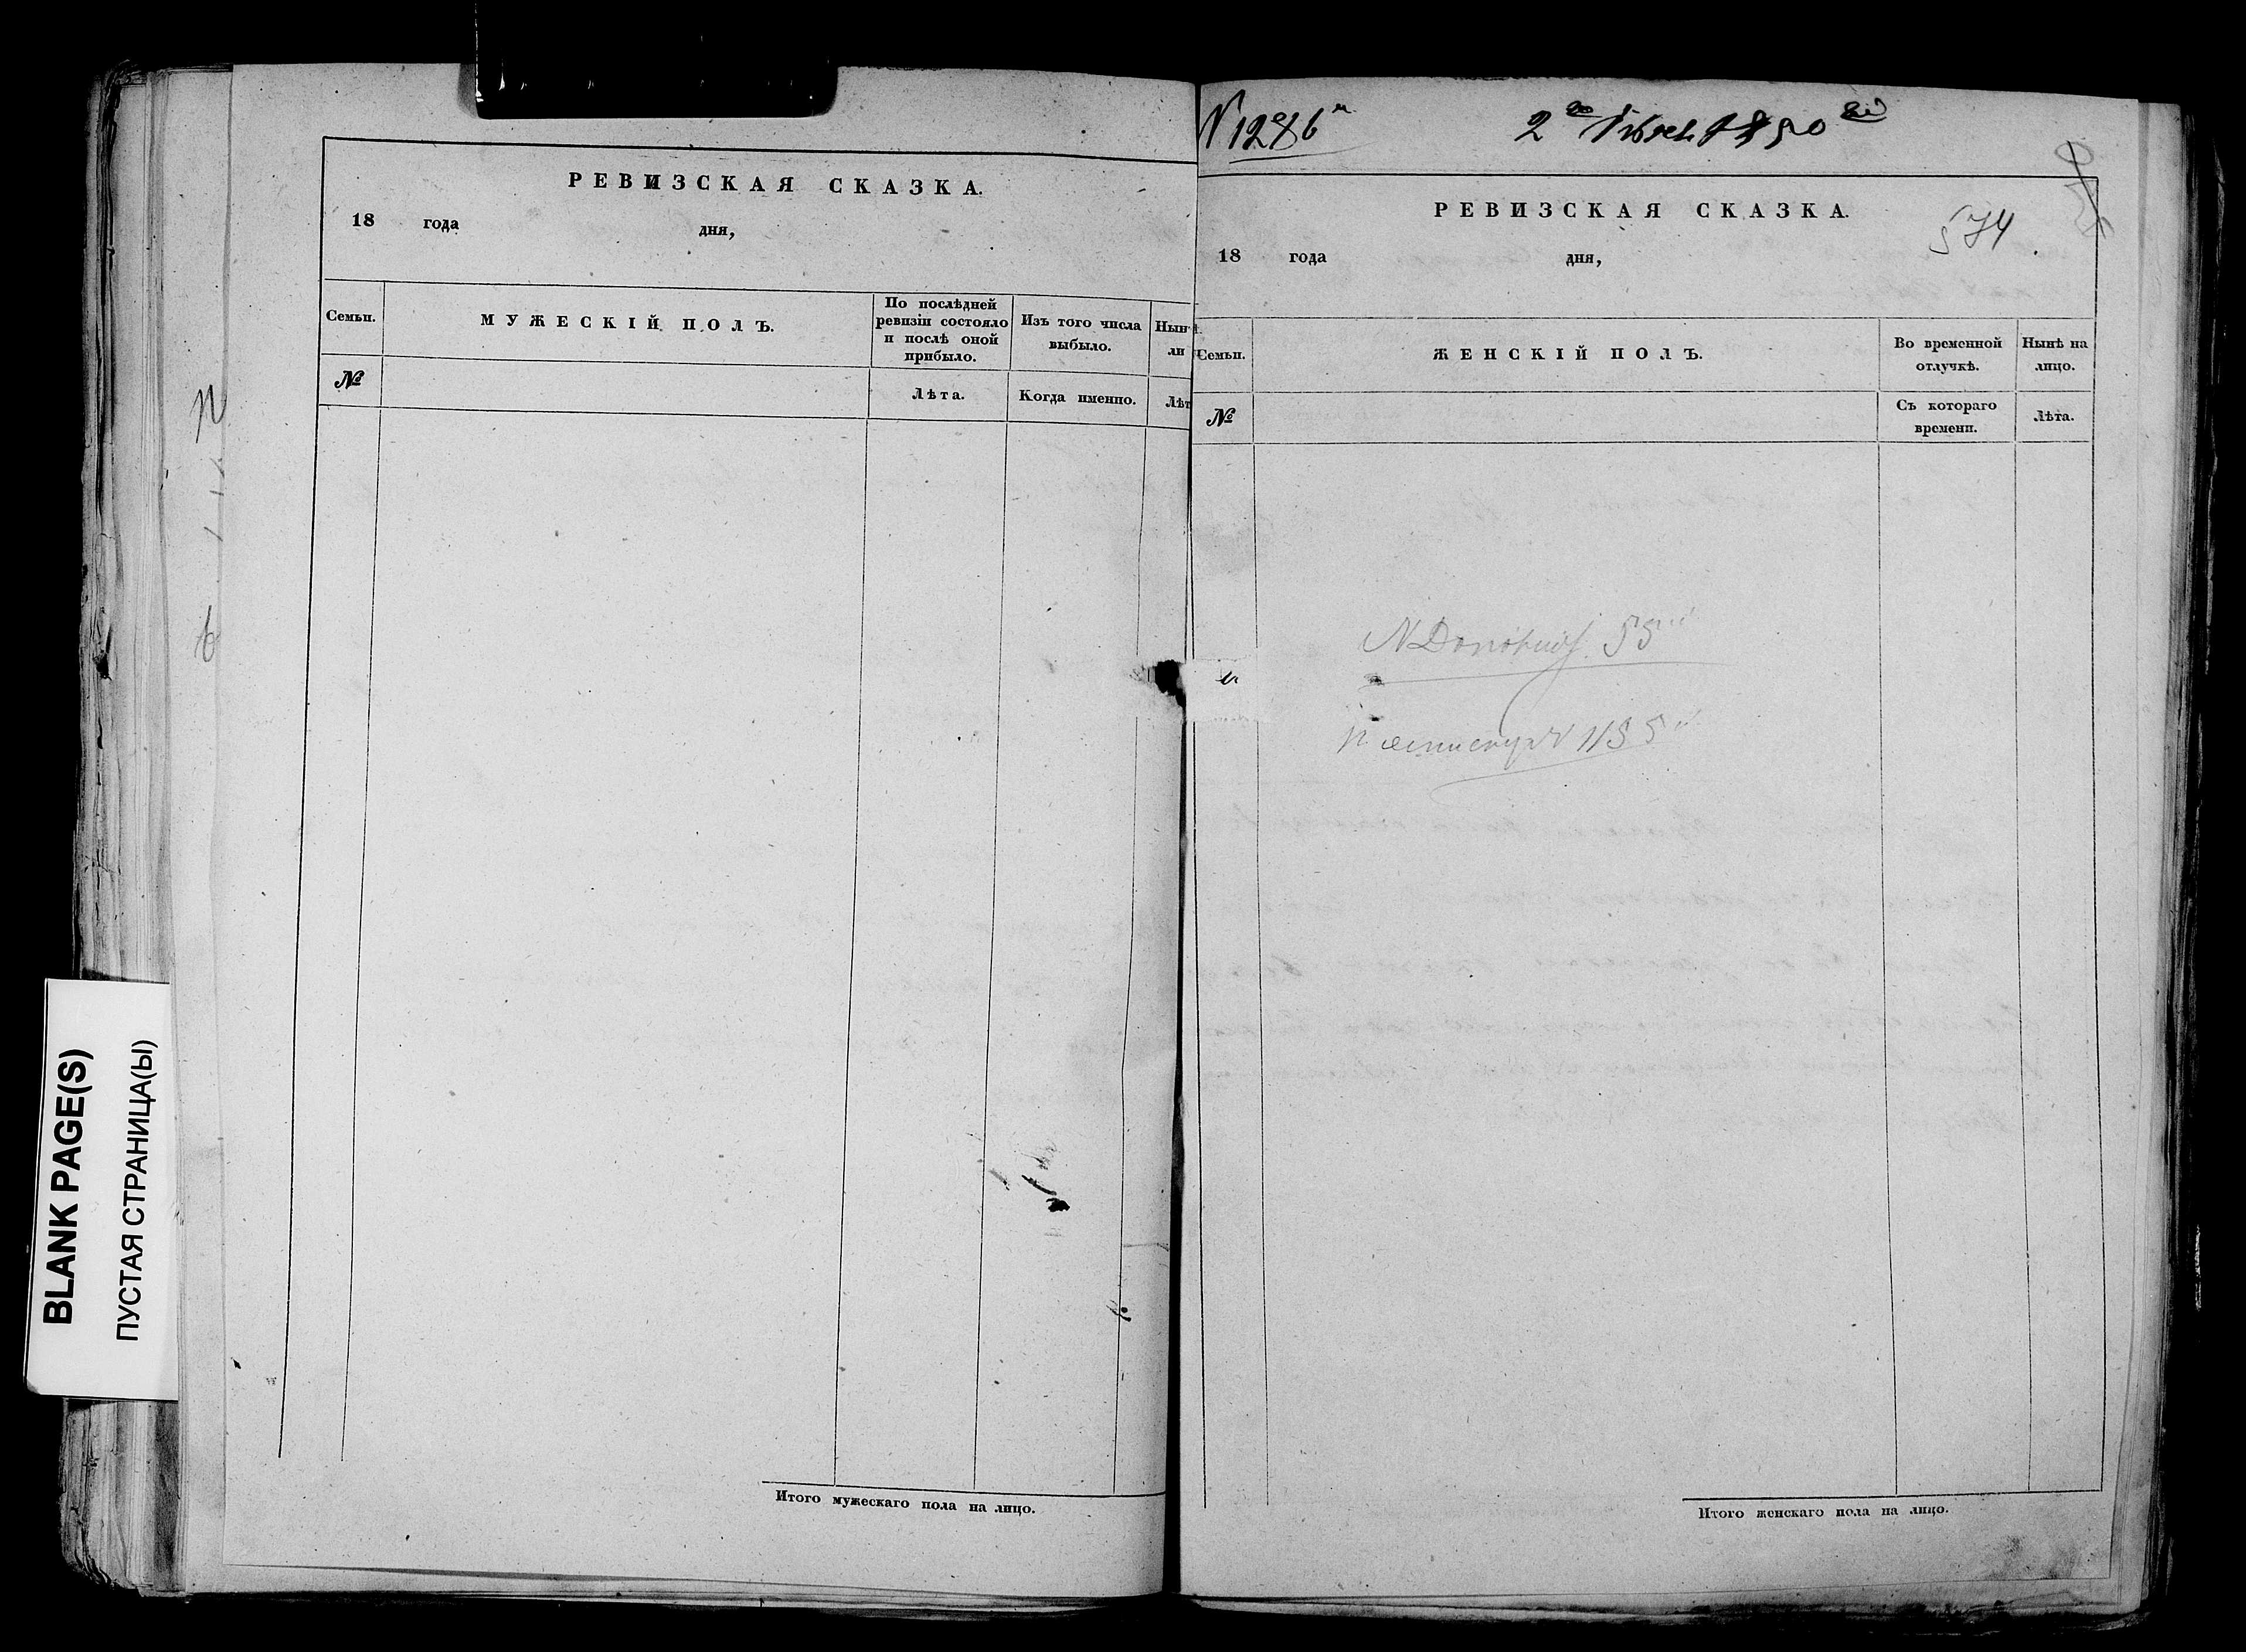 РЕВИЗСКАЯ СКАЗКА.
18 года дня,
Семьи. МУЖЕСКІЙ ПОЛЪ. По послѣдней ревизіи состояло и послѣ оной прибыло. Изъ того числа выбыло.
№ Лѣта. Когда именно.
Итого мужескаго пола на лицо.
N 1286
РЕВИЗСКАЯ СКАЗКА.
574
18 года дня,
Семьи. ЖЕНСКІЙ ПОЛЪ. Во временной отлучкѣ. Нынѣ на лицо.
№ Съ котораго времени. Лѣта.
Итого женскаго пола на лицо.
BLANK PAGE(S)
ПУСТАЯ СТРАНИЦА(Ы)